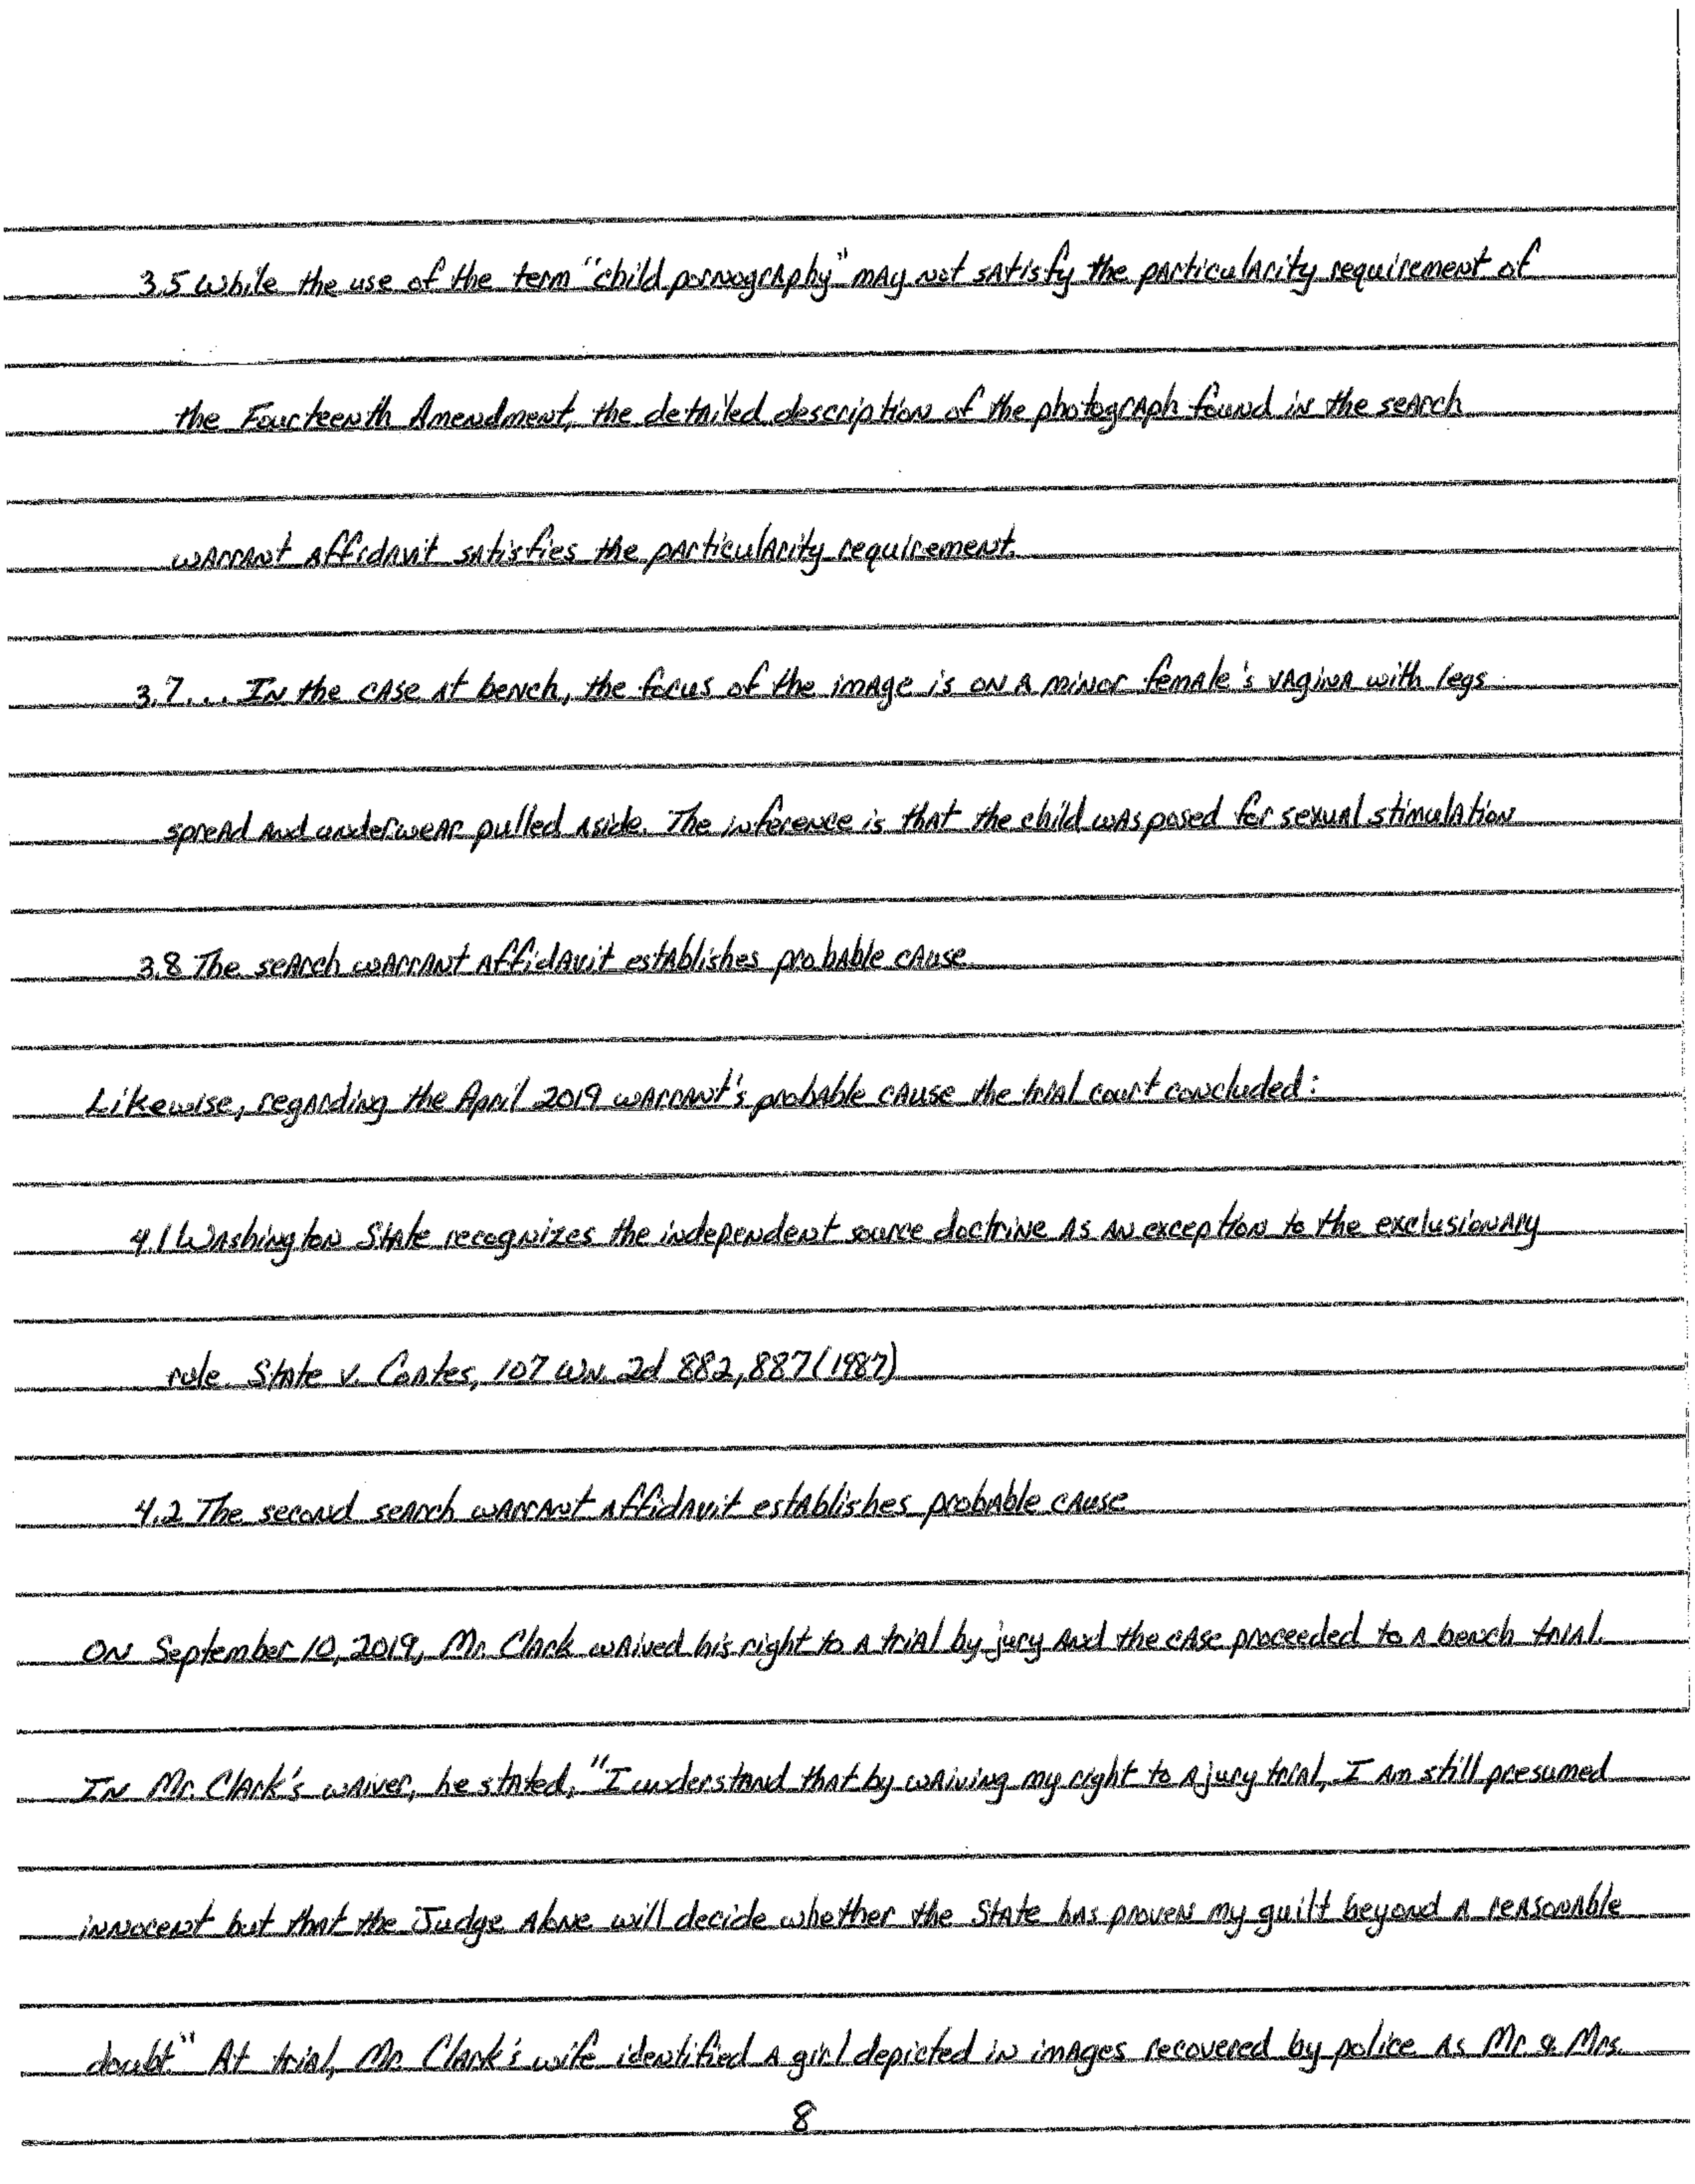 3.5 While the use of the term "child pornography" may not satisfy the particularity requirement of
the Fourteenth Amendment, the detailed description of the photograph found in the search
warrant affidavit satisfies the particularity requirement.
3.7... In the case at bench, the focus of the image is on a minor female's vagina with legs
spread and underwear pulled aside. The inference is that the child was posed for sexual stimulation
3.8 The search warrant affidavit establishes probable cause
Likewise, regarding the April 2019 warrant's probable cause the trial court concluded:
4.1 Washington State recognizes the independent source doctrine as an exception to the exclusionary
rule. State v. Coates, 107 Wn. 2d 882, 887 (1987)
4.2 The second search warrant affidavit establishes probable cause
On September 10, 2019, Mr. Clark waived his right to a trial by jury and the case proceeded to a bench trial.
In Mr. Clark's waiver, he stated, "I understand that by waiving my right to a jury trial, I am still presumed
innocent but that the Judge alone will decide whether the State has proven my guilt beyond a reasonable
doubt." At trial, Mr. Clark's wife identified a girl depicted in images recovered by police as Mr. & Mrs.
8